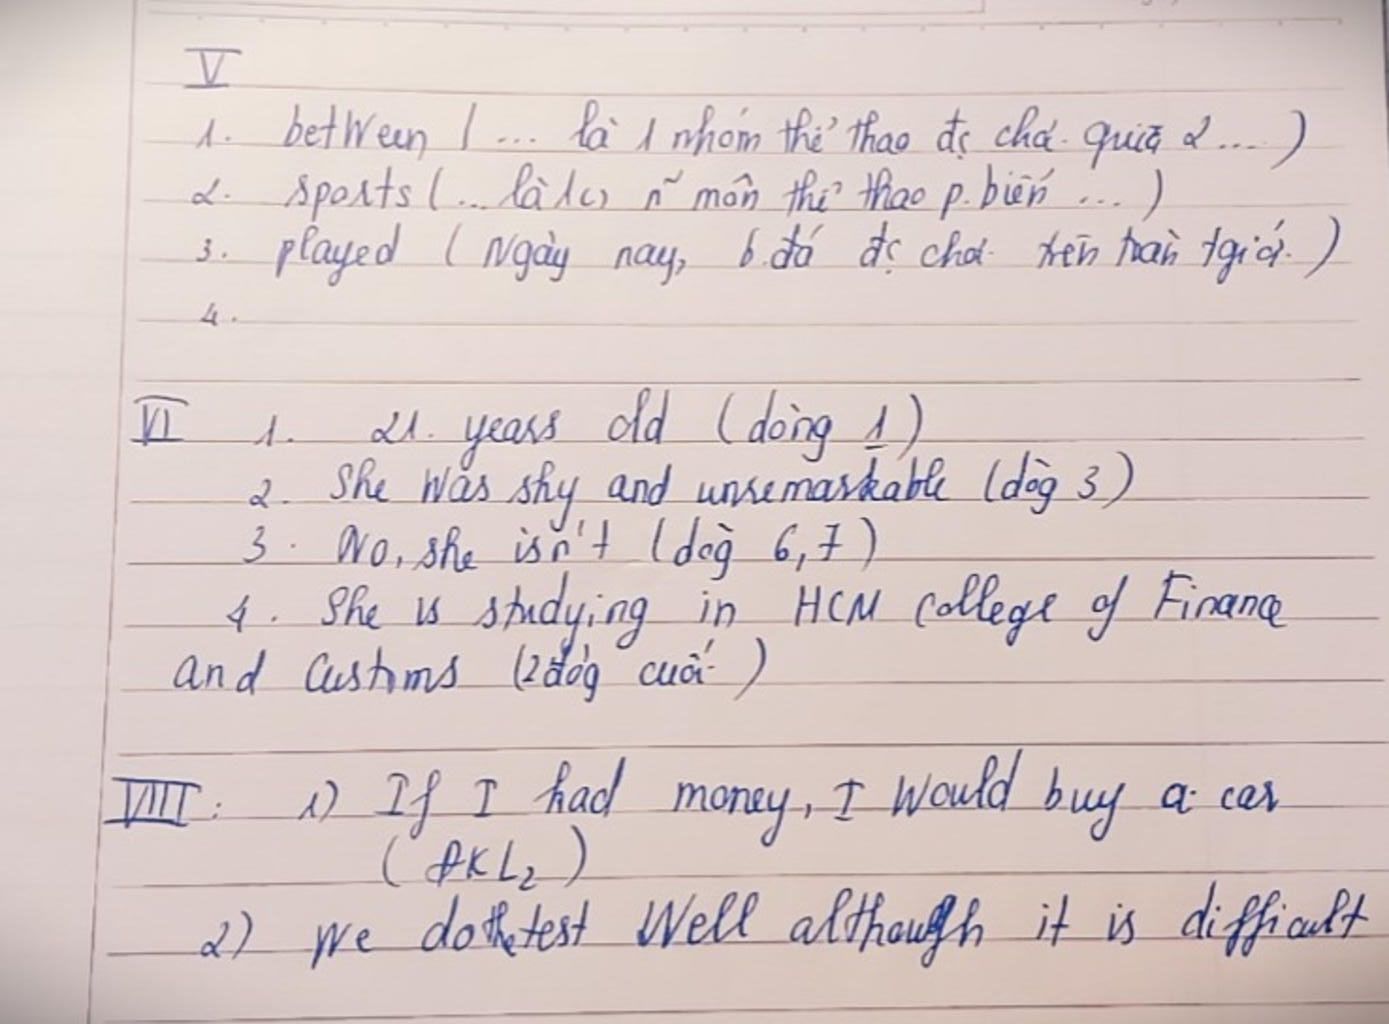 V
1. between ( ... là 1 nhóm thể thao đc chơi giữa 2 ... )
2. sports ( ... là 1 (') n~ môn thể thao p. biến ... )
3. played ( Ngày nay, b. đá đc chơi trên toàn tgiới. )
4.
VI 1. 21. years old (dòng 1)
2. She was shy and unremarkable (dòg 3)
3. No, she isn't (dòg 6, 7)
4. She is studying in HCM college of Finance
and Customs (2 dòg cuối )
VIII: 1) If I had money, I would buy a car
( ĐKL2 )
2) We do the test well although it is difficult